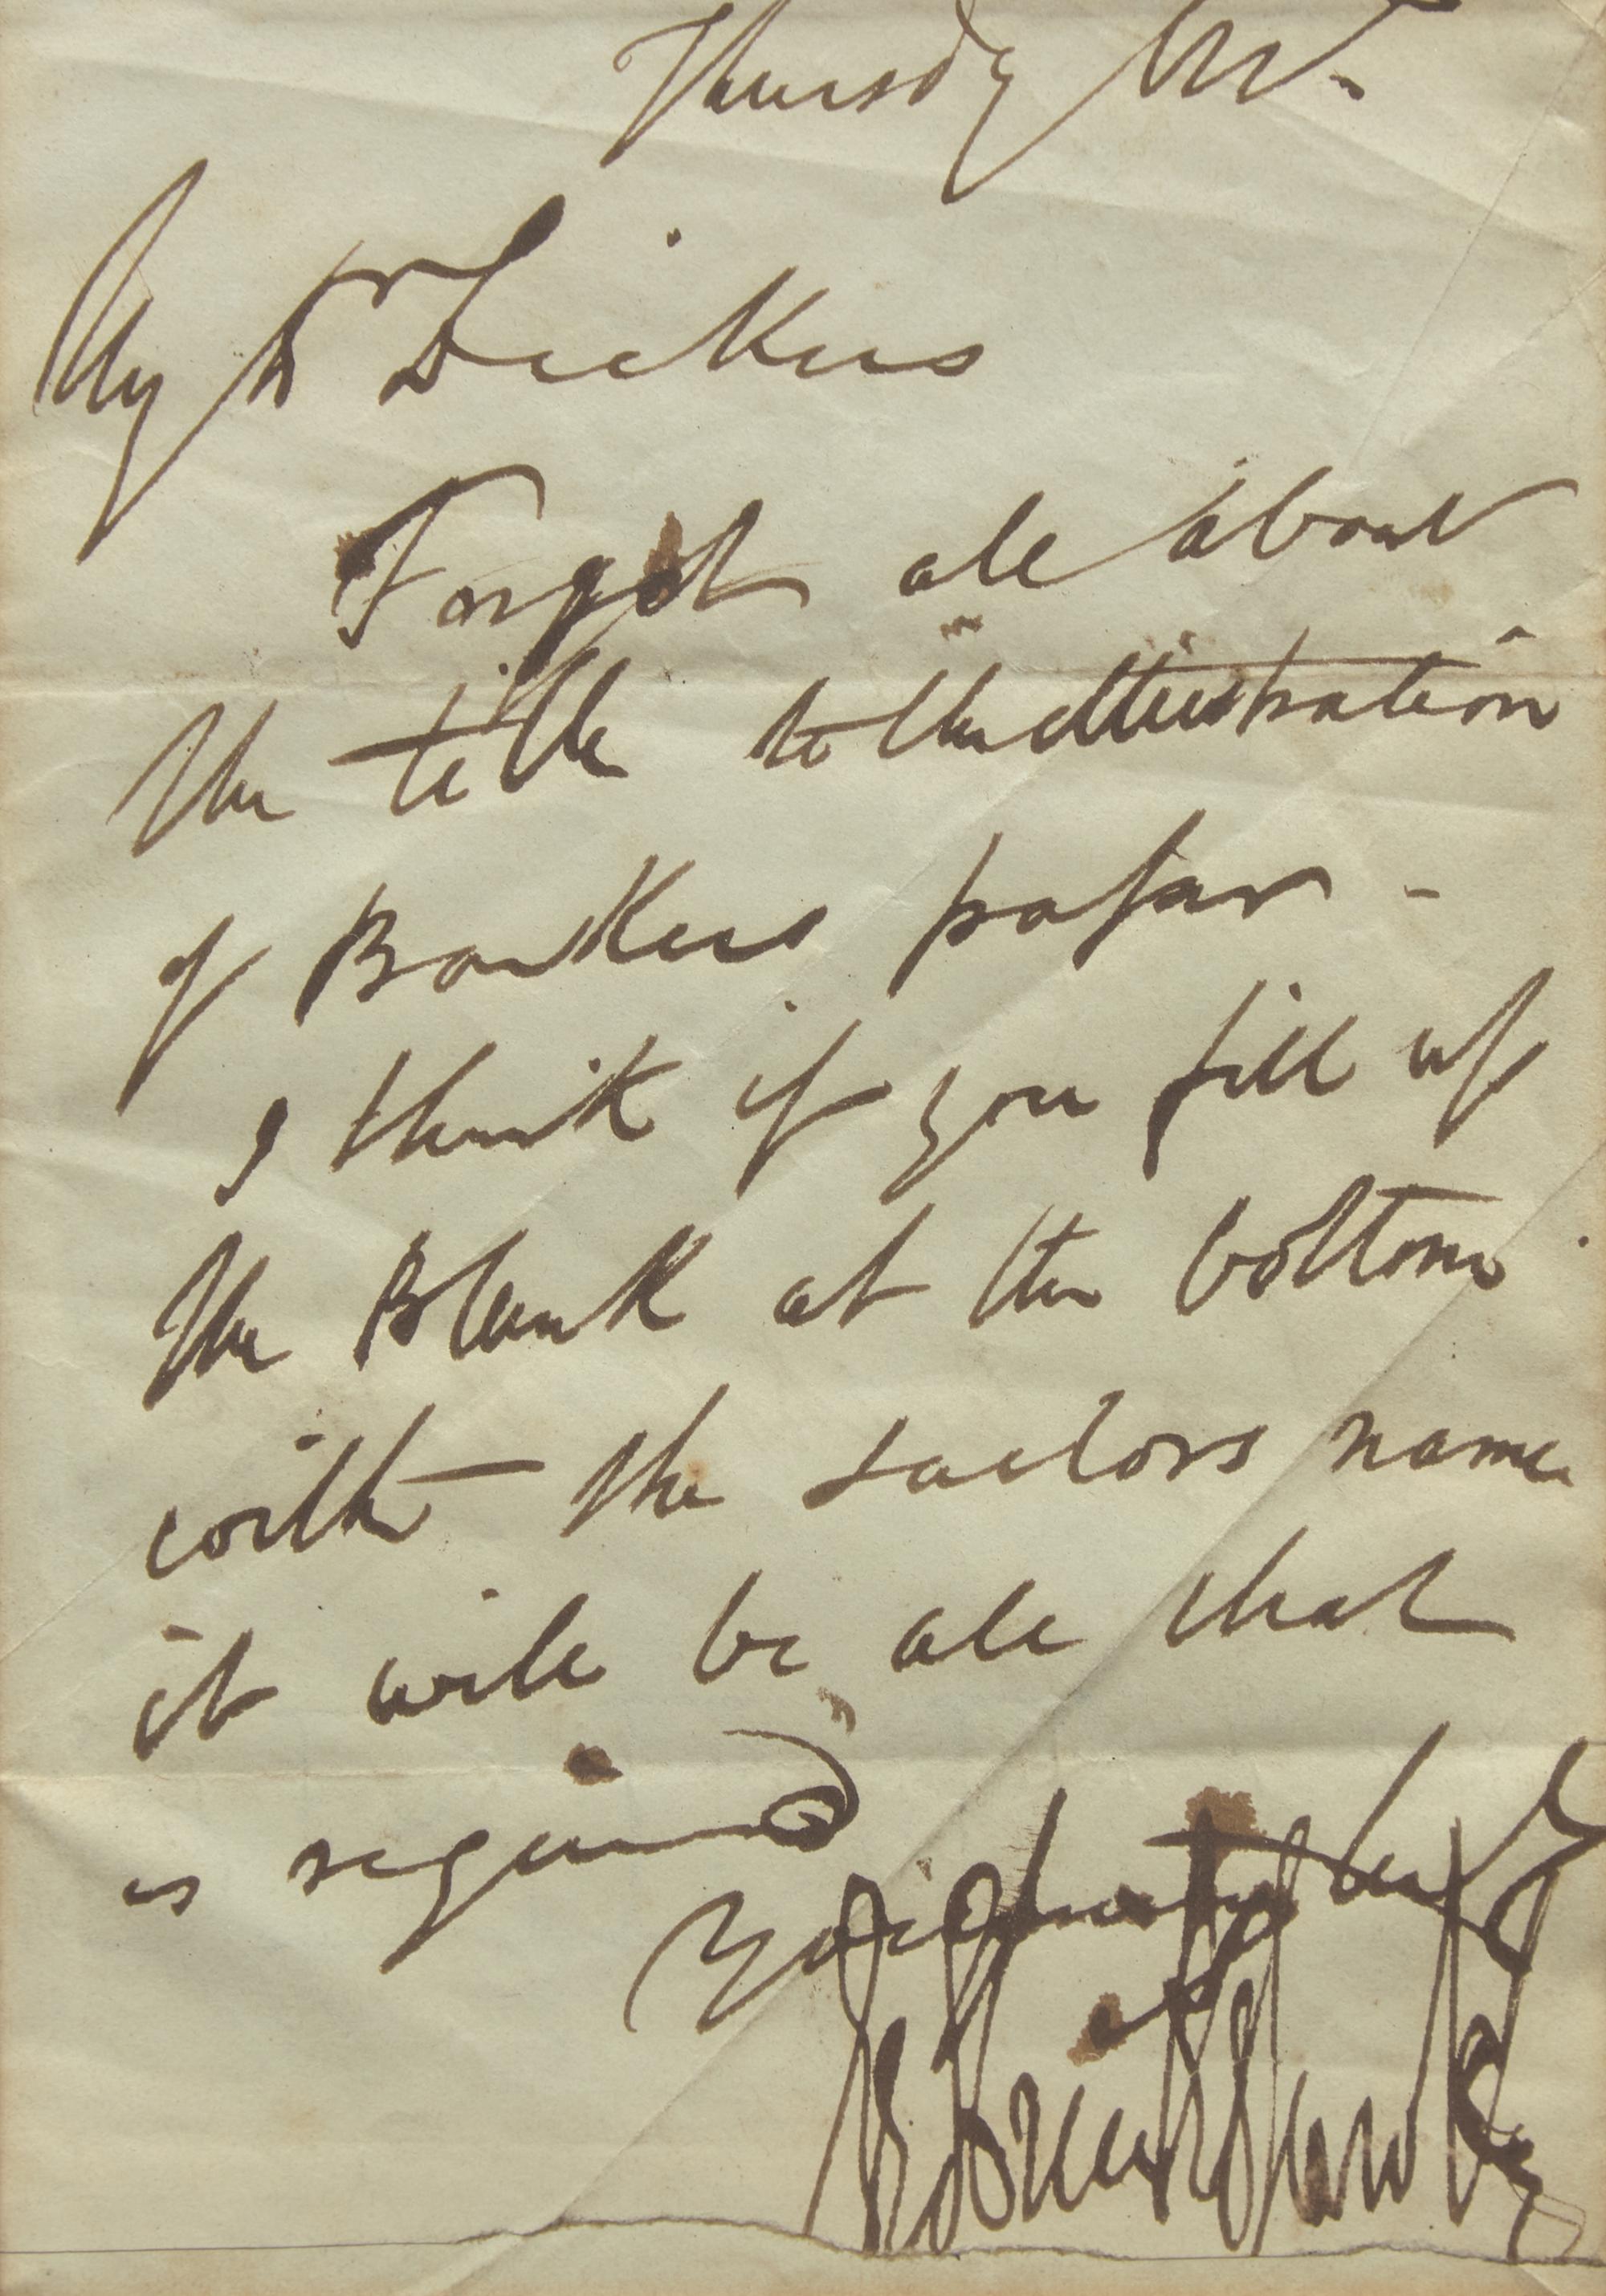 Thursday
My Dr Dickens
Forgot all about
the title to the illustration
of Barkers paper -
I think if you fill up
the Blank at the bottom
with the sailors name
it will be all that
is required
George Cruikshank